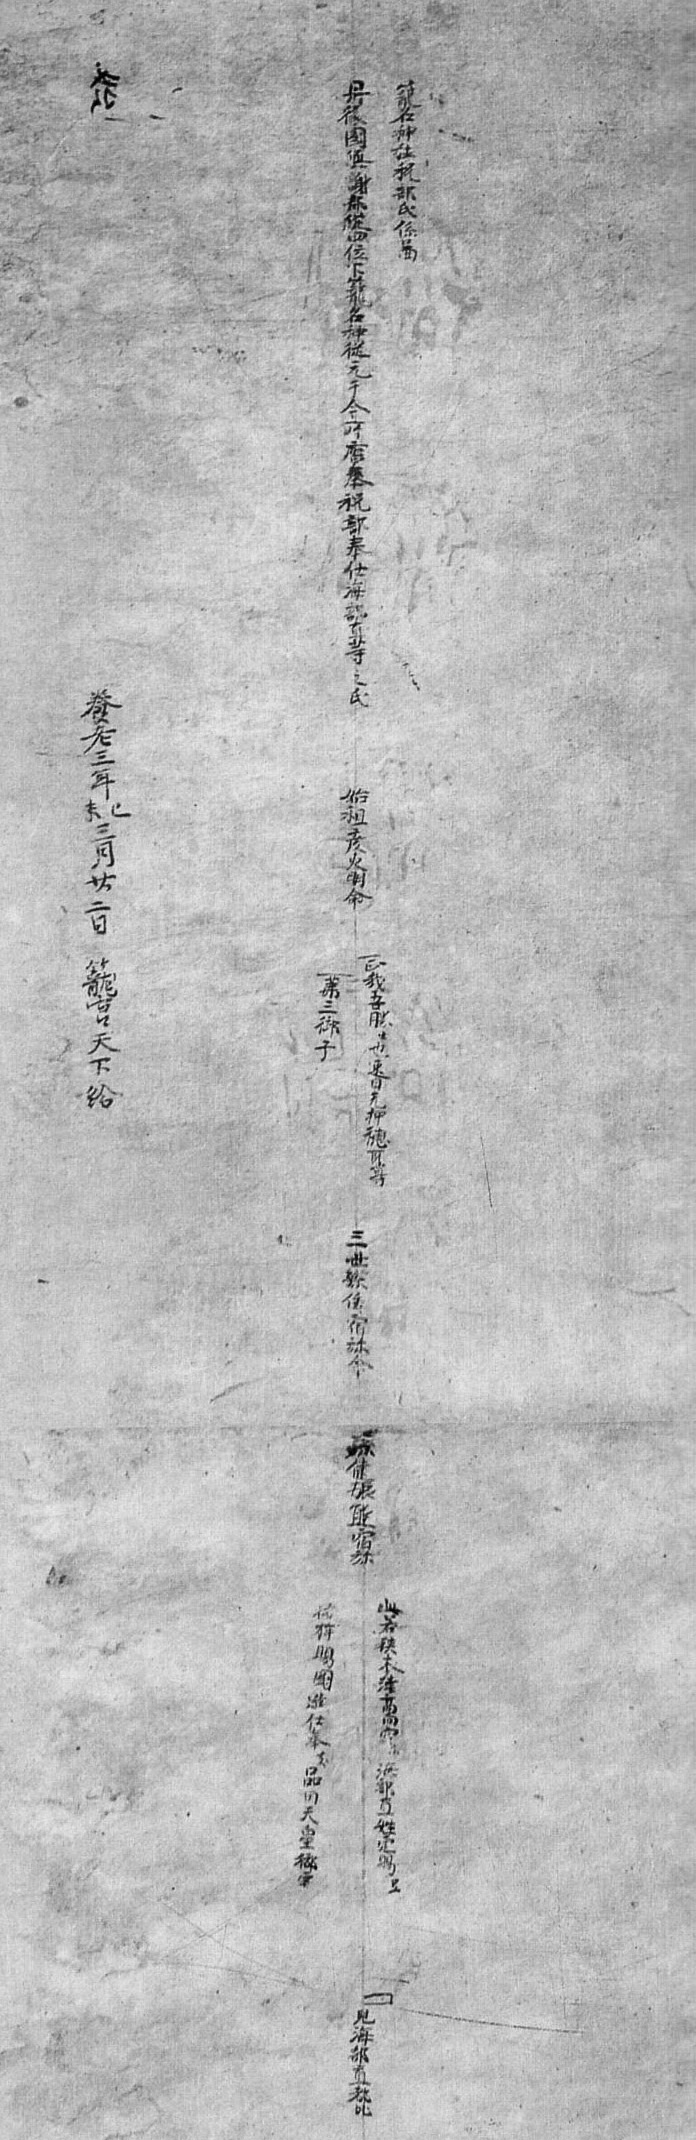 籠名神社祝部氏係圖
丹後國與謝郡從四位下籠名神從元于今所齋奉祝部奉仕海部直等之氏
始祖彦火明命
正哉吾勝勝也速日天押穗耳尊
第三御子
三世孫倭宿祢命
孫健振熊宿祢
此若狹木津高向宮 海部直姓定賜 
品田天皇御宇
児海部直都比
養老三年己未三月廿二日 籠宮天下給